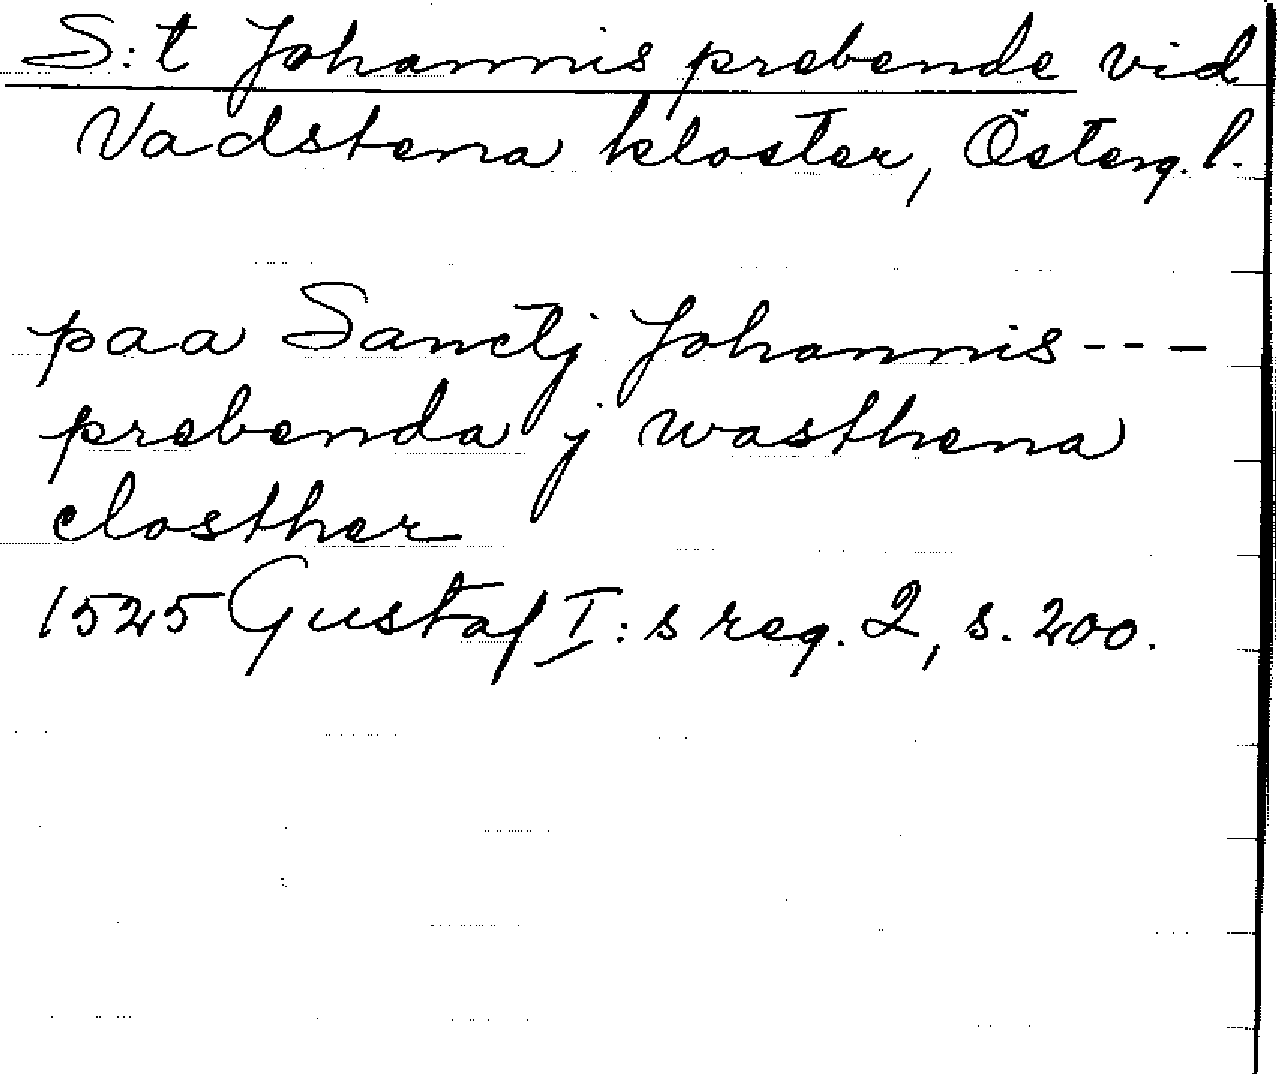 S:t Johannis prebende vid
Vadstena kloster, Österg. l.
paa Sanctj Johannis - - -
prebenda j wasthena
closther
1525 Gustaf I:s reg. 2, s. 200.